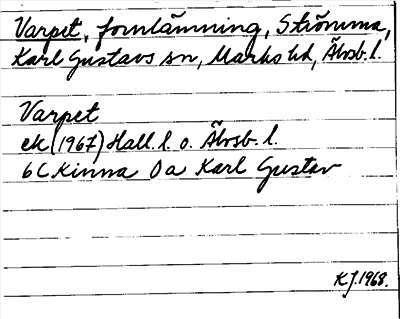 Varpet, fornlämning, Strömma,
Karl Gustavs sn, Marks hd, Älvsb. l.
Varpet
ek (1967) Hall. l. o. Älvsb. l.
6C Kinna 0a Karl Gustav
KJ. 1968.